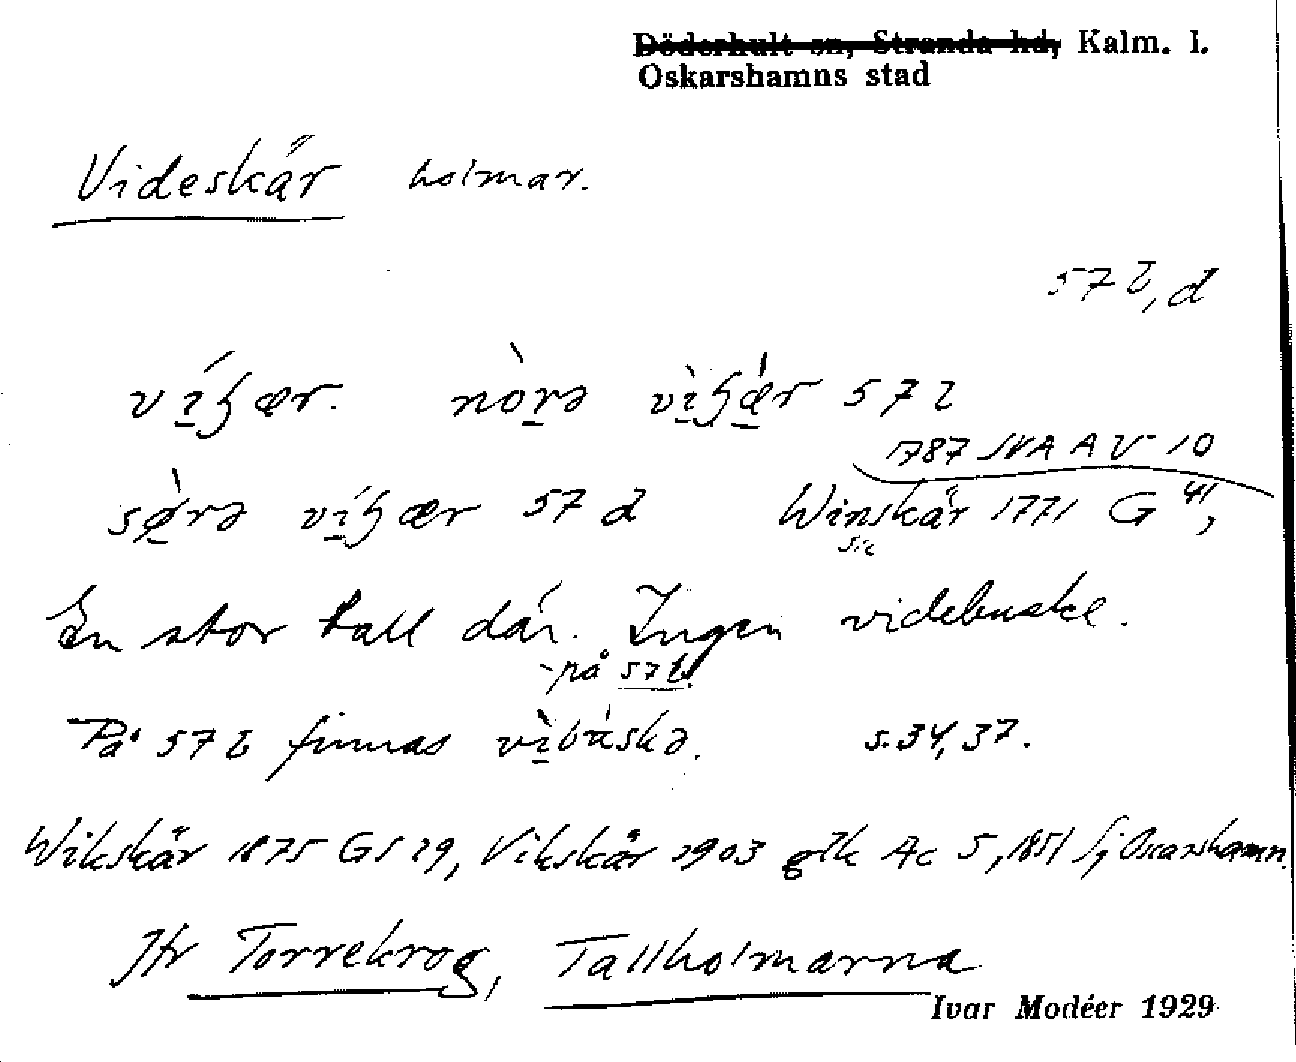 Döderhult sn, Stranda hd, Kalm. l.
Oskarshamns stad
Videskär holmar.
57 b, d
57 b
1787 SNA A V 10
57 d Winskär 1771 G 41,
sic
En stor tall där. Ingen videbuske.
på 57 b.
På 57 b finnas s. 34, 37.
Wikskär 1875 GS 29, Vikskär 1903 glk Ac 5, 1851 Sj, Oscarshamn.
Jfr Torrekrog, Tallholmarna
Ivar Modéer 1929